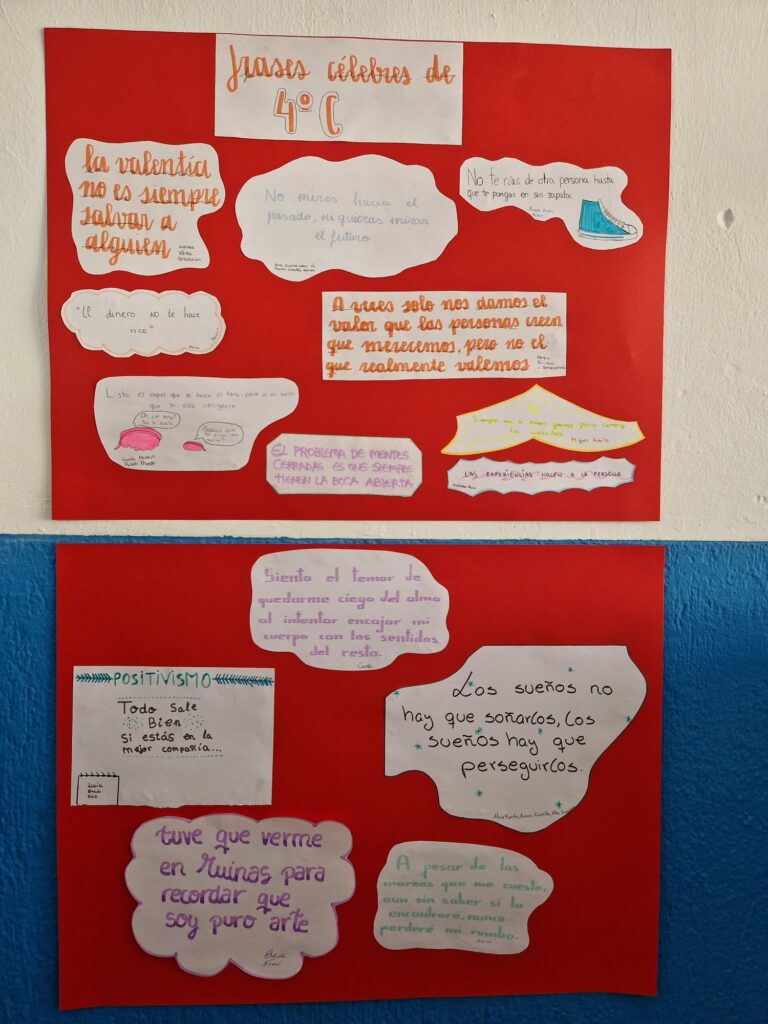 frases célebres de
4º C
la valentía
no es siempre
salvar a
alguien
No mires hacia el
pasado, ni quieras mirar
el futuro
No te rías de otra persona hasta
que te pongas en sus zapatos
"El dinero no te hace
rico"
A veces solo nos damos el
valor que las personas creen
que merecemos, pero no el
que realmente valemos
Listo es aquel que se hace el tonto ante un tonto
que se cree inteligente
EL PROBLEMA DE MENTES
CERRADAS ES QUE SIEMPRE
TIENEN LA BOCA ABIERTA
Siempre va a haber ganas para
Miguel
LAS EXPERIENCIAS HACEN A LA PERSONA
Siento el temor de
quedarme ciego del alma
al intentar encajar mi
cuerpo con los sentidos
del resto.
POSITIVISMO
Todo Sale
Bien
Si estás en la
mejor compañía...
Los sueños no
hay que soñarlos, los
sueños hay que
perseguirlos.
tuve que verme
en Ruinas para
recordar que
soy puro arte
A pesar de las
mareas que me cueste,
aun sin saber si lo
encontraré, nunca
perderé mi rumbo.